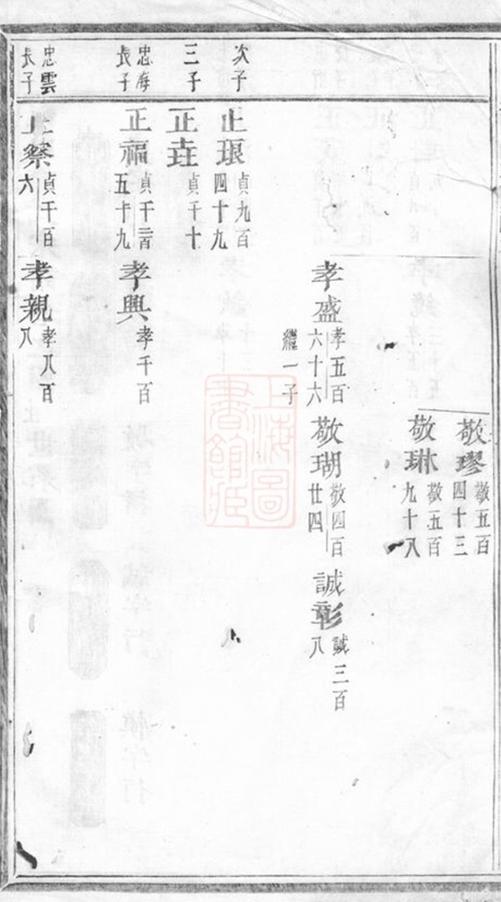 敬璆 敬五百四十三
敬琳 敬五百九十八
孝盛 孝五百六十六 繼一子
敬瑚 敬四百廿四
誠彰 誠三百八
次子
正珢 貞九百四十九
三子
正 貞千十
忠海長子
正福 貞千百五十九
孝興 孝千百
忠雲長子
正祭 貞千百六
孝親 孝八百八
上海圖書館藏